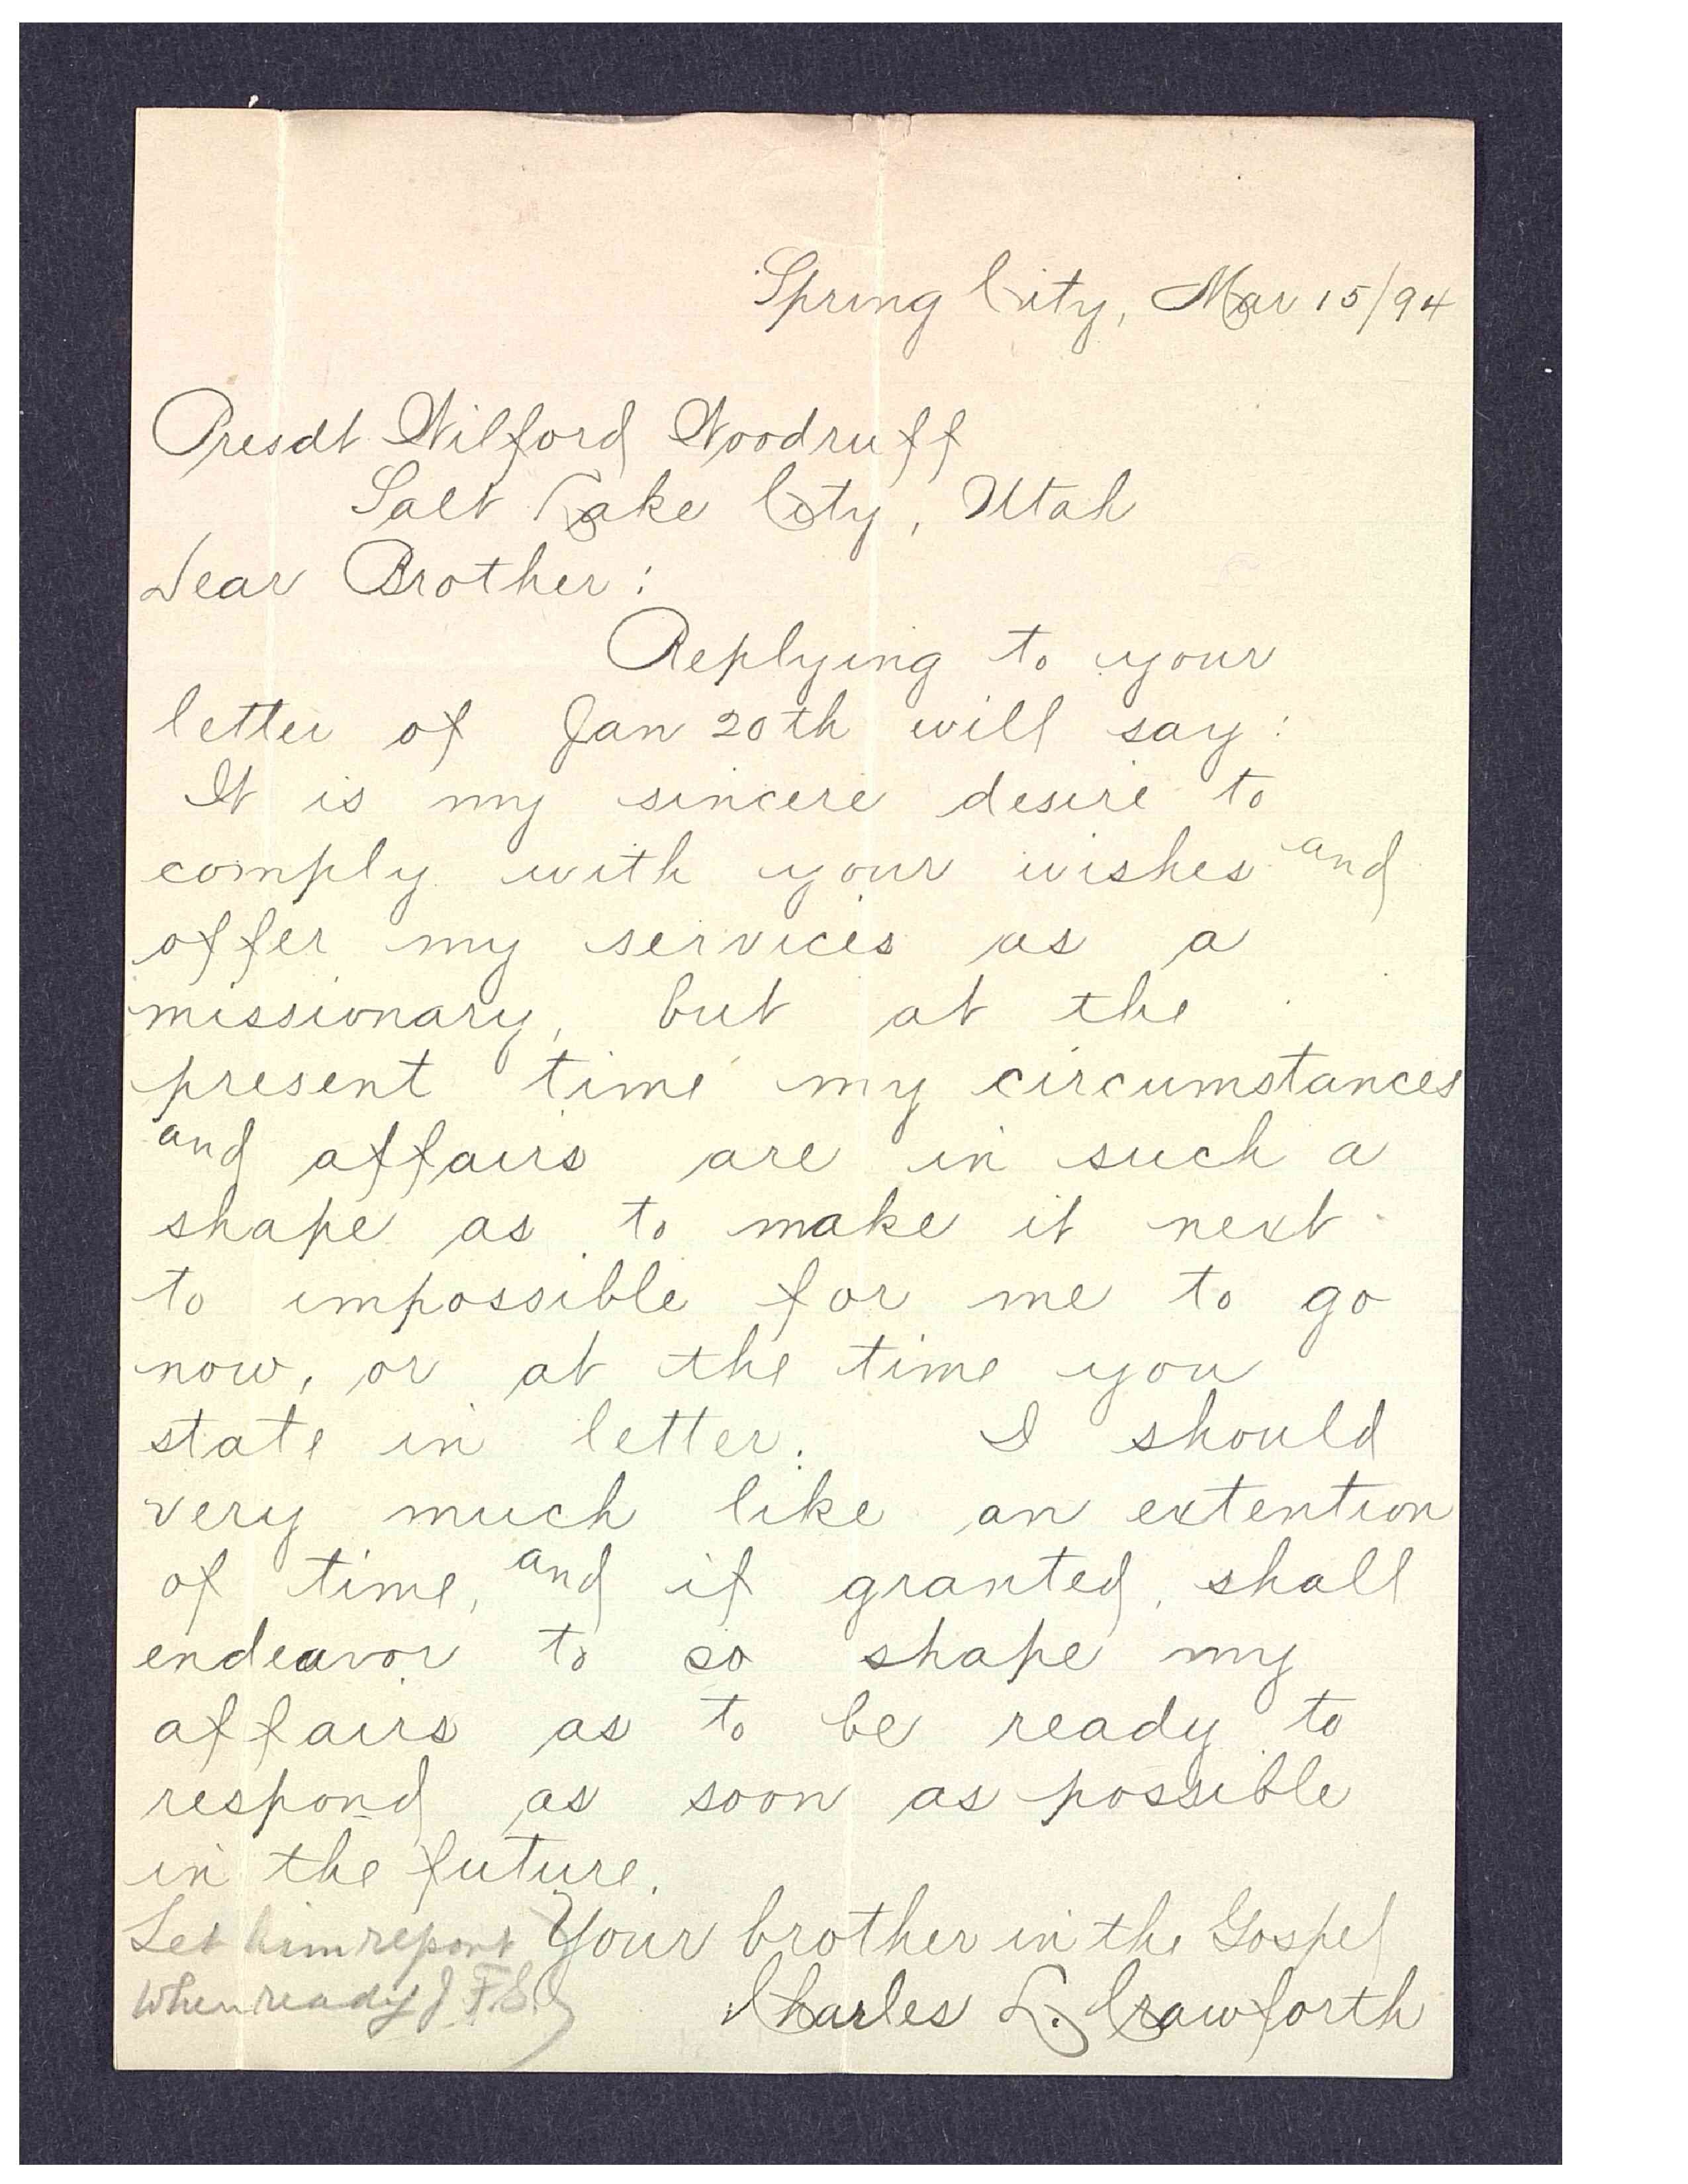 Spring City, Mar 15/94
Presdt Wilford Woodruff
Salt Lake City, Utah
Dear Brother:
Replying to your
letter of Jan 20th will say:
It is my sincere desire to
comply with your wishes and
offer my services as a
missionary, but at the
present time my circumstances
and affairs are in such a
shape as to make it next
to impossible for me to go
now, or at the time you
state in letter. I should
very much like an extention
of time, and if granted, shall
endeavor to so shape my
affairs as to be ready to
respond as soon as possible
in the future.
Your brother in the Gospel
Charles L. Crawforth
Let him report
when ready J.F.S.